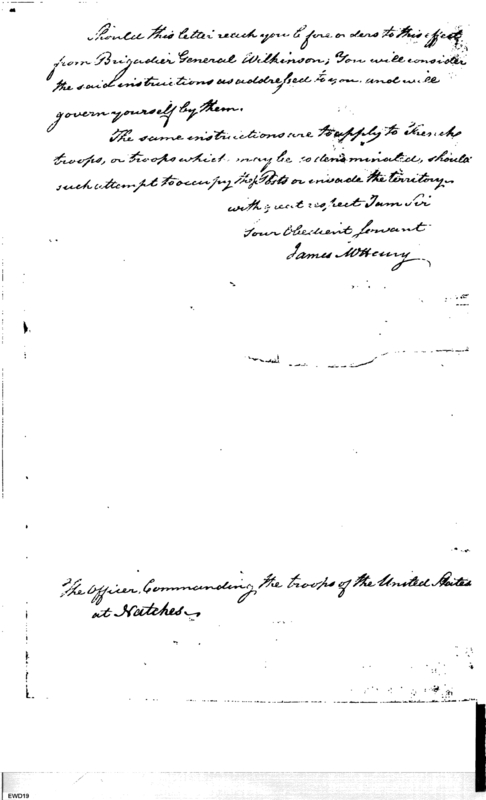 Should this letter reach you before orders to this effect
from Brigadier General Wilkinson; You will consider
the said instructions as addressed to you and will
govern yourself by them.
The same instructions are to apply to French
troops, or troops which may be so denominated, should
such attempt to occupy the Posts or invade the territory
with great respect I am Sir
Your Obedient Servant
James McHenry
The Officer Commanding the troops of the United States
at Natches
EWD19